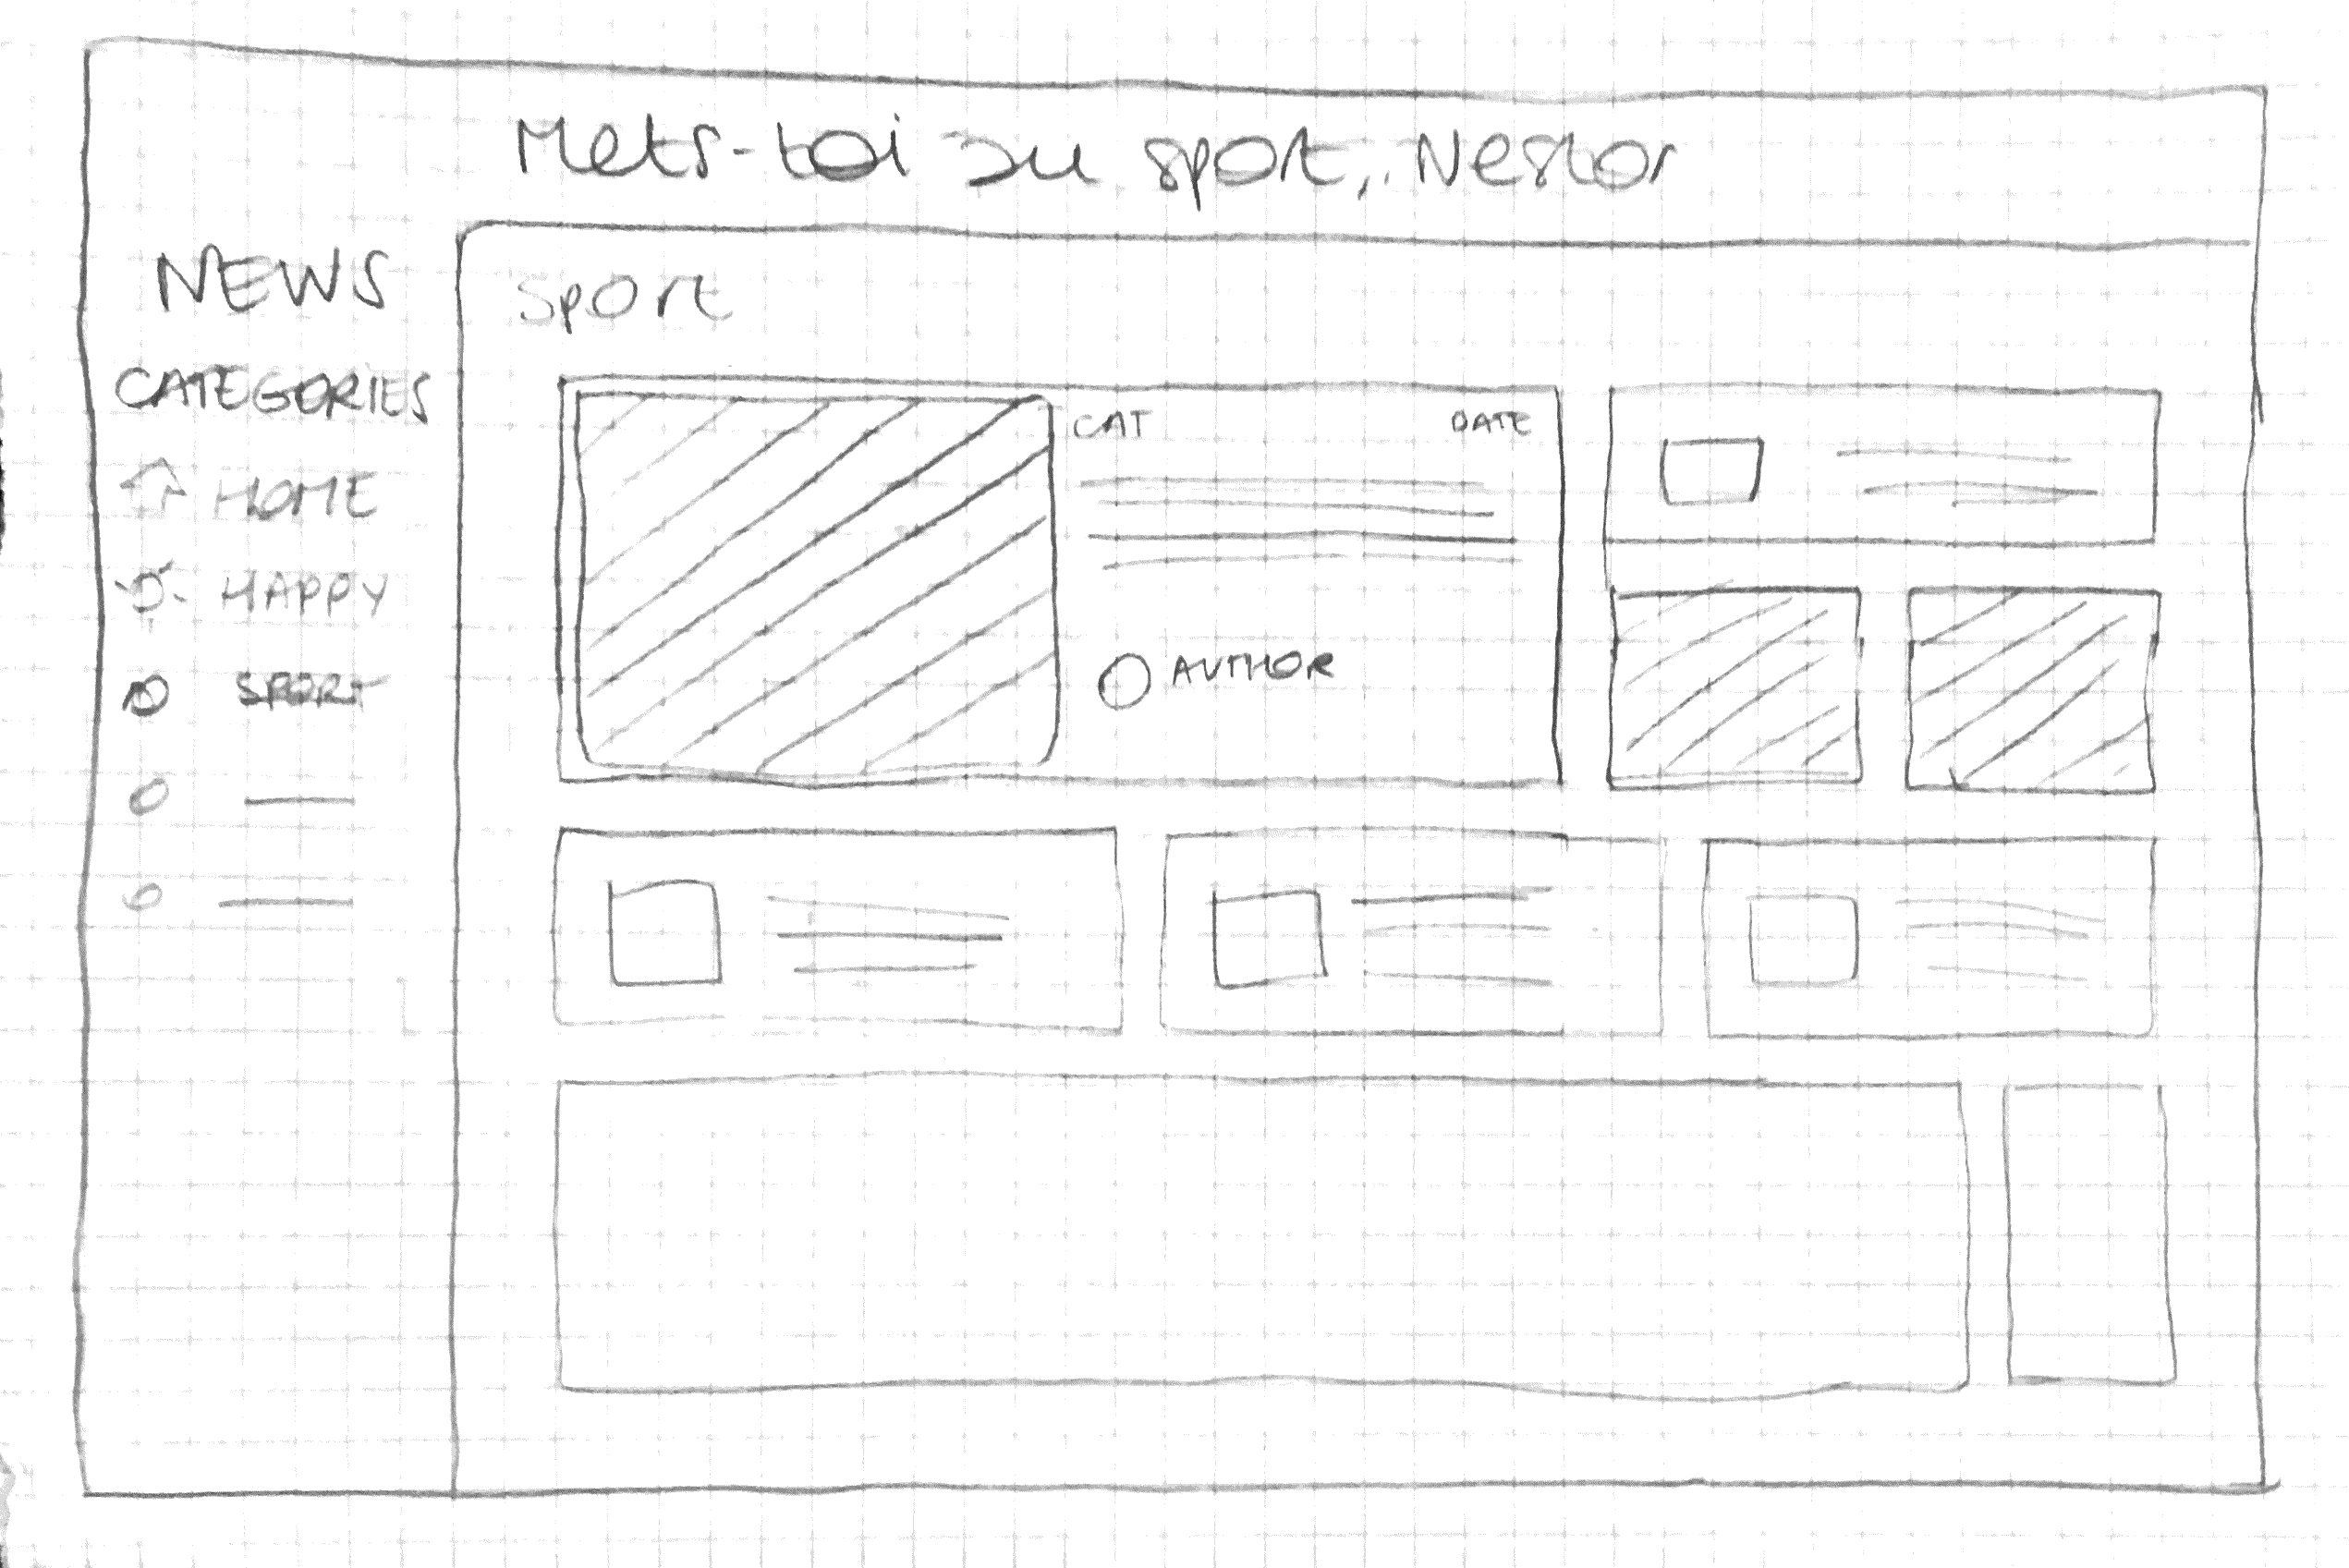 Mets-toi au sport, Nestor
NEWS
CATEGORIES
HOME
HAPPY
SPORT
Sport
CAT
DATE
AUTHOR